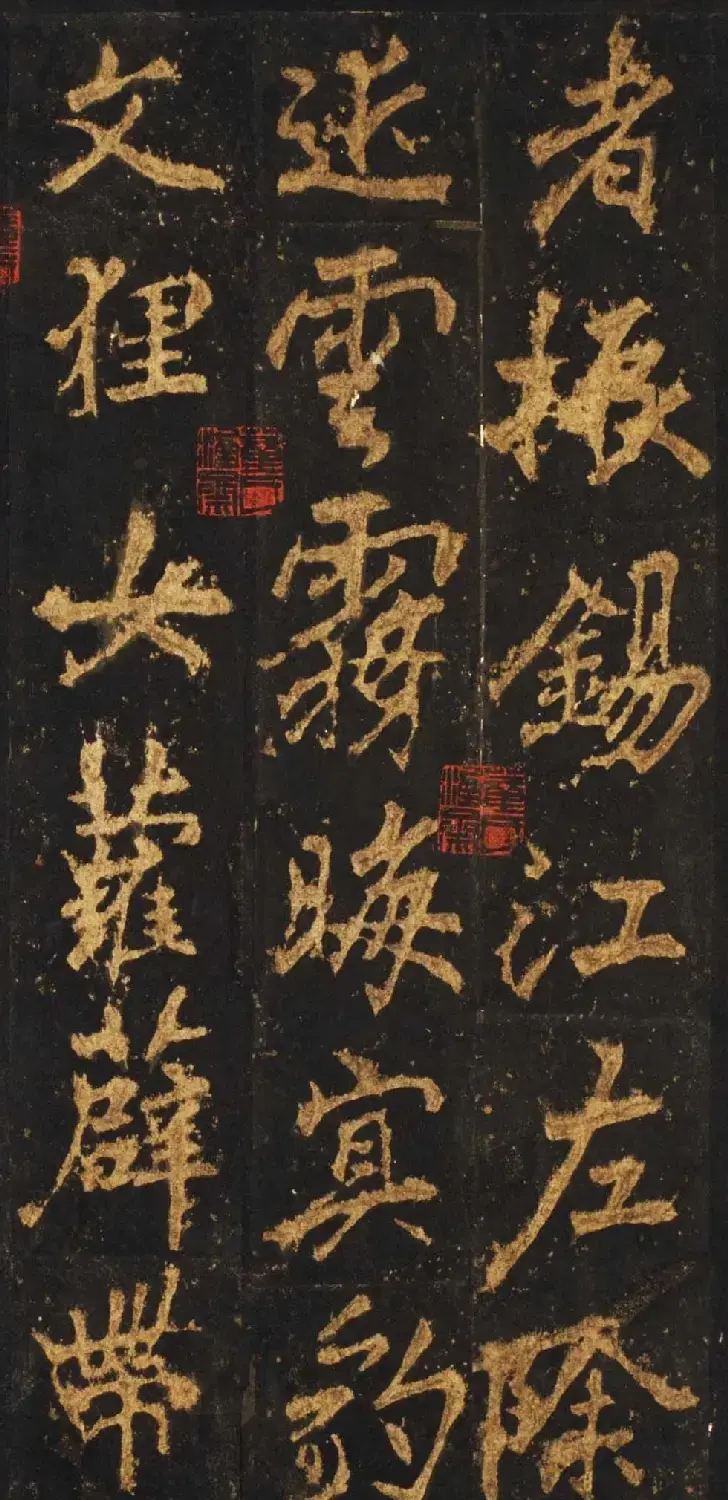 者振錫江左除
雲霧晦冥豹
文狸女蘿薜帶